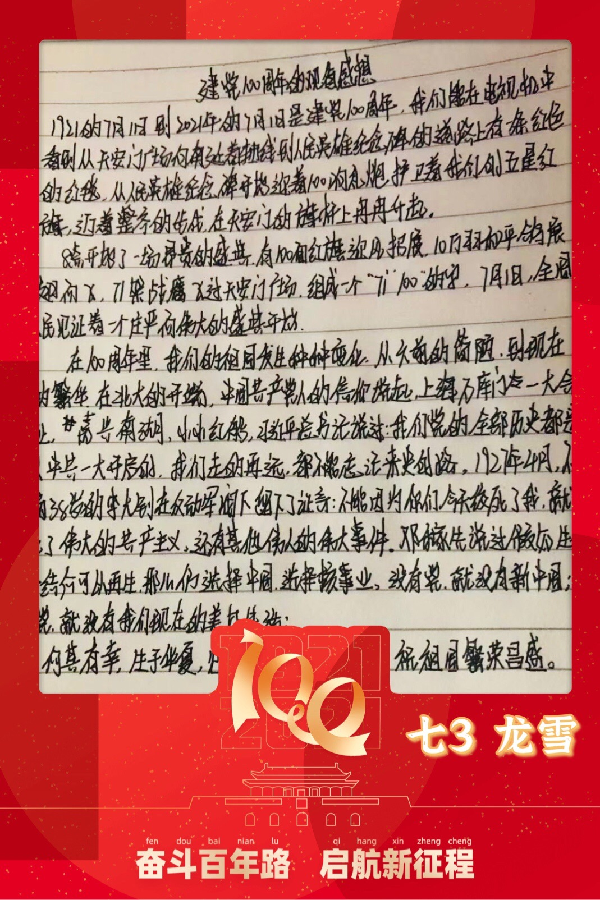 建党100周年的观看感想
1921的7月1日到2021年的7月1日是建党100周年，我们能在电视机中
看到从天安门广场向南延着轴线到人民英雄纪念碑的道路上有一条红色
的红毯，从人民英雄纪念碑开始沿着100响礼炮，护卫着我们的五星红
旗，迈着整齐的步伐，在天安门的旗杆上冉冉升起。
开始了一场界的盛典，有100面红旗迎风招展，10万羽和平鸽展
翅而飞，71架战鹰飞过天安门广场，组成一个"71""100"的字，7月1日，全国
民见证着一才庄严而伟大的盛典开始。
在100周年里，我们的祖国发生种种变化，从六前的简陋，到现在
的繁华，在北大的开端，中国共产党人的信仰，上海万库门，一大会
，南湖，小小红船，习近平总书记说过：我们党的全部历史都是
中共一大开启的，我们走的再远，都不能忘记来史的路。1927年4月，
38岁的李大钊在反动军阀下留下了证言：不能因为你们今天绞死了我，就
了伟大的共产主义，还有其他伟人的伟大事件。邓稼先说过假如生
终结后可以再生，那么仍选择中国，选择核事业。没有党，就没有新中国；
党，就没有我们现在的美好生活；
何其有幸，生于华夏， 祝祖国繁荣昌盛。
1921
100
2021
七3 龙雪
fen dou bai nian lu qi hang xin zheng cheng
奋斗百年路 启航新征程